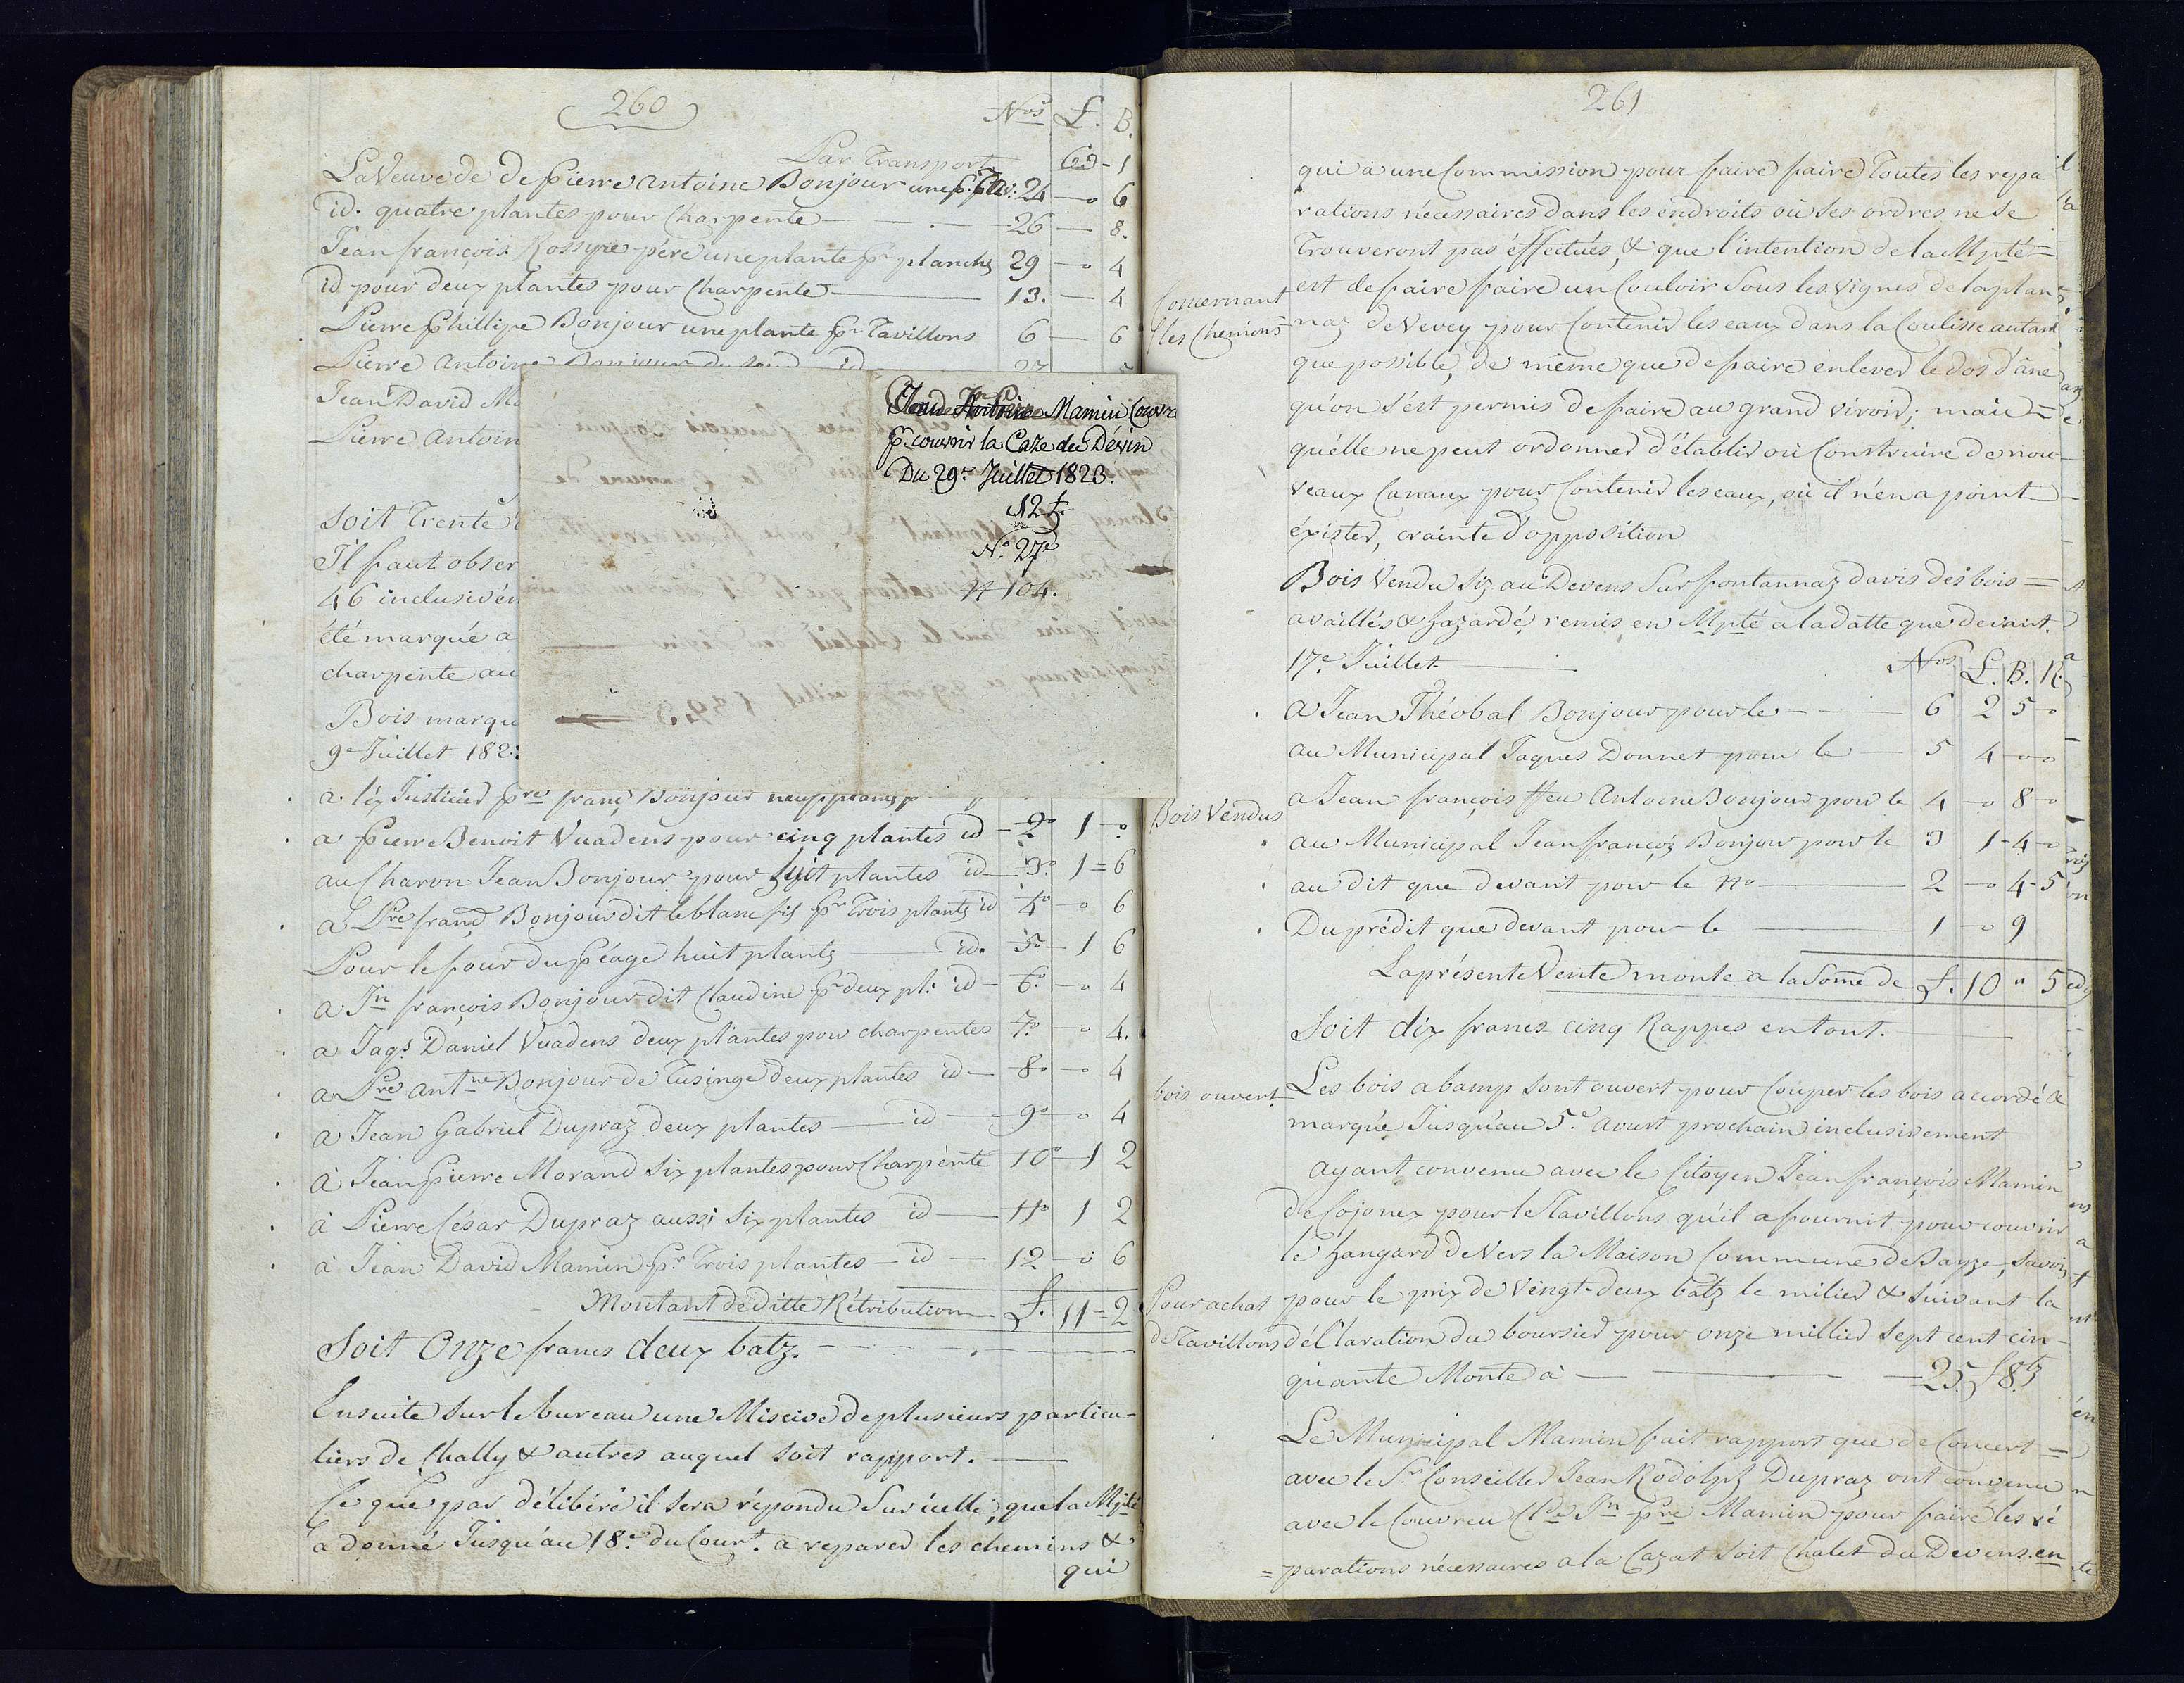 260
Nos L. B.
Par Transport 69 - 1
La Veuve de de Pierre Antoine Bonjour une p. Tav: 24 - o 6
id. quatre plantes pour Charpente - 26 - 8.
Jean françois Rossyre père une plante pr planchs 29 - o 4
id pour deux plantes pour Charpente - 13. - 4
Pierre Phillipe Bonjour une plante pr Tavillons 6 - 6
Pierre Antoine Bonjour
Jean David Ma
Pierre Antoin
Soit Trente
Il faut obser
46 inclusivém
été marquée a
charpente au
Bois marqué
9e Juillet 182
a léx Justicier pre franç Bonjour neuf plants
a Pierre Benoit Vuadens pour cinq plantes id - 2o 1 - o
au Charon Jean Bonjour pour huit plantes id - 3o 1 = 6
a Pre franç Bonjour dit leblanc fils pr Trois plants id 4o - o 6
Pour le four du Péage huit plants - id. 5o - 1 6
a Jn françois Bonjour dit Claudine pr deux pl: id - 6o - o 4
a Jaqs Daniel Vuadens deux plantes pour charpentes 7o - o 4.
a Pre Antne Bonjour de Tusinge deux plantes id - 8o - o 4
a Jean Gabriel Dupraz deux plantes - id - 9o - o 4
à Jean Pierre Morand Six plantes pour Charpente 10o - 1 2
à Pierre César Dupraz aussi Six plantes id - 11o 1 2
à Jean David Mamin pr Trois plantes - id - 12 - o 6
Montant de Ditte Rétribution L. 11 = 2
Soit Onze francs deux batz.
Ensuite Sur le bureau une Miscive de plusieurs particu-
liers de Chally & autres auquel soit rapport.
Ce que par délibéré il sera répondu Sur icelle, que la Mpté
a donné Jusqu'au 18e du Court. a reparer les chemins &
qui
Mamin Couvr
p. couvrir la Caze du Dévin
Du 29e Juillet 1823.
12 f.
No. 27e
N 104.
261
qui a une Commission pour faire faire Toutes les repa
rations nécessaires dans les endroits où Ses ordres ne se
Trouveront pas éffectués, & que l'intention de la Mpté =
Concernant
les Chemins
est de faire faire un Couloir Sous les Vignes de la plan
naz de Vevey pour Contenir les eaux dans la Coulisse autant
que possible, de même que de faire enlever le dos d'âne
qu'on s'est permis de faire au grand viroir; mais =
qu'elle ne peut ordonner d'établir où Construire de nou-
veaux Canaux pour Contenir les eaux, où il n'en a point
éxister, crainte d'opposition
Bois Vendu Siz au Devens Sur fontannaz davis des bois =
availlés & hazardé, remis en Mpté a la datte que devant.
17e Juillet - Nos L. B. R.
a Jean Théobal Bonjour pour le - 6 2 5 - o
au Municipal Jaques Donnet pour le - 5 4 - o o
Bois Vendus
a Jean françois ffeu Antoine Bonjour pour le 4 - o 8 - o
au Municipal Jean françois Bonjour pour le 3 1 - 4 - o
au dit que devant pour le No - 2 - o 4 - 5
Du prédit que devant pour le - 1 - o 9
La présente Vente monte a la Somme de L. 10 " 5
Soit dix francs cinq Rappes en tout.
bois ouvert
Les bois a bamp Sont ouvert pour Couper les bois accordé &
marqué Jusqu'au 5e Avurt prochain inclusivement
ayant convenu avec le Citoyen Jean françois Mamin
de Cojonex pour le Tavillons qu'il a fournit pour couvrir
le hangard de Vers la Maison Commune de Sayze, Savoir
Pour achat
de Tavillons
pour le prix de Vingt-deux batz le milier & suivant la
déClaration du boursier pour onze millier Sept cent cin-
quante Monte à - 25. f 8 btz
Le Municipal Mamin fait rapport que de Concert =
avec le Sr Conseiller Jean Rodolph Dupraz ont convenu
avec le Couvreu Cde Jn Pre Mamin pour faire les ré
= parations nécessaires a la Cazat Soit Chalet du Devens. en